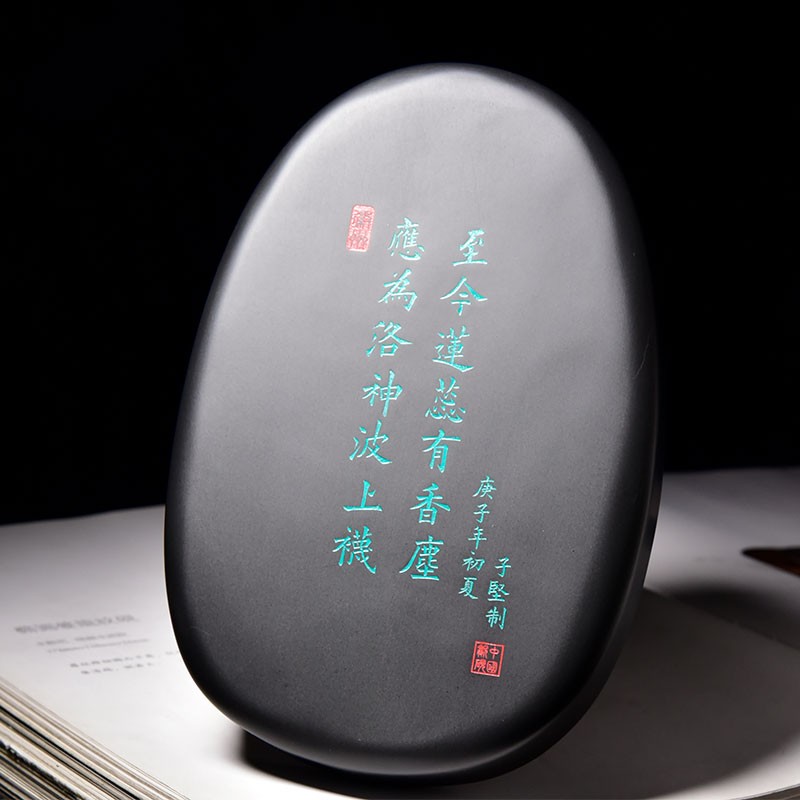 應為洛神波上襪
至今蓮蕊有香塵
庚子年初夏
子堅制
中國
歙硯